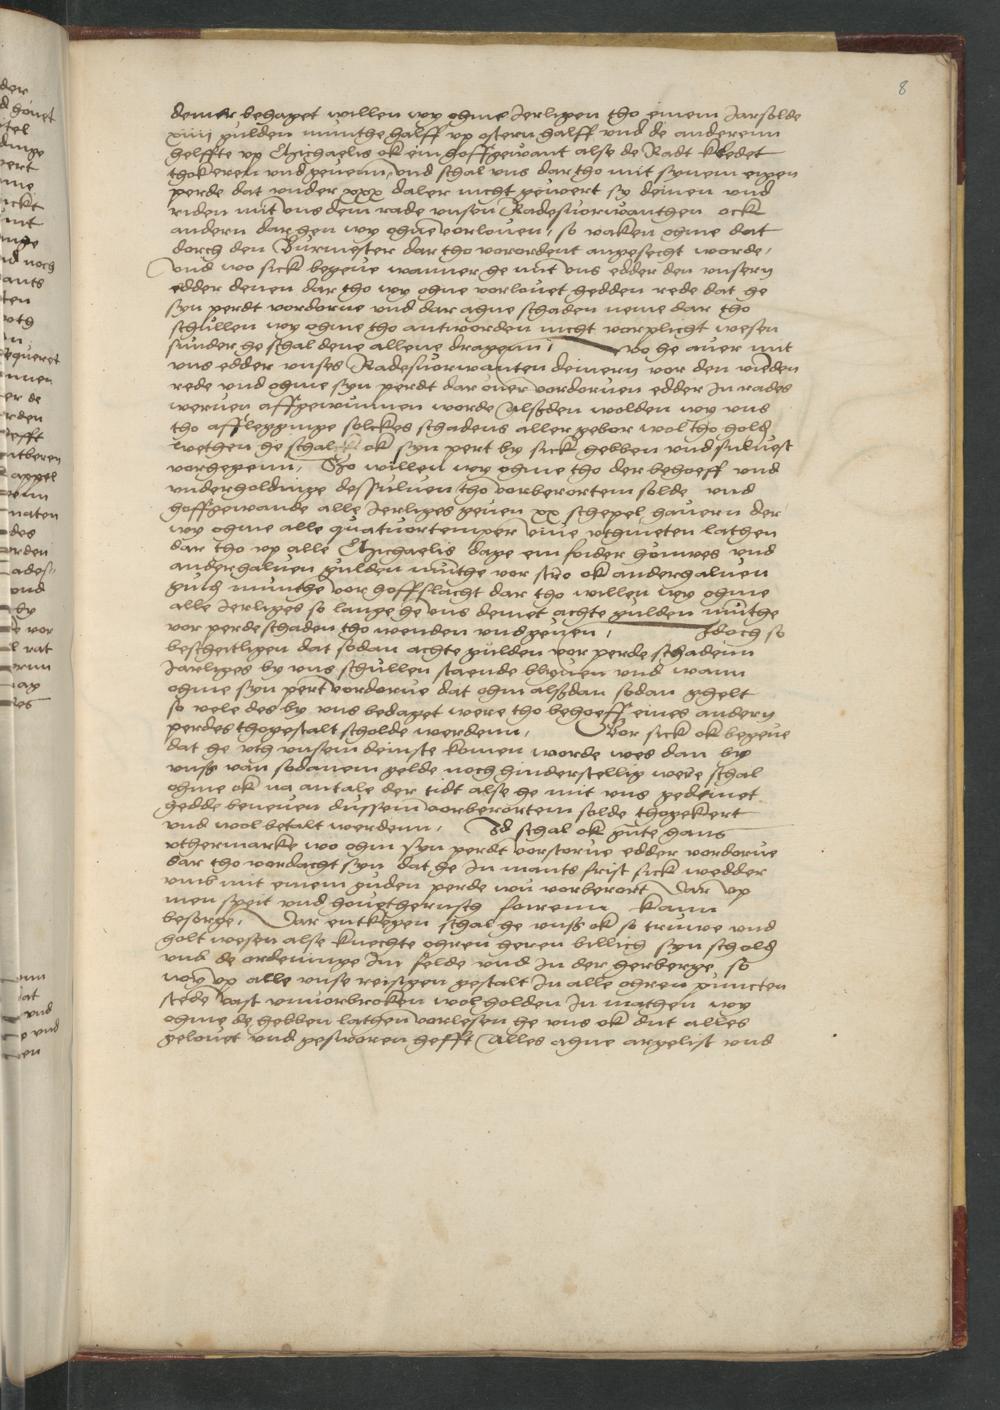 8
denner behaget willen wy ohme Jerligen tho einem Jarsolde
xiiii gulden munthe halff up ostern halff und de anderenn
helffte up Michaelis ok ein hoffgewant alse de Radt kledet
thokeren und gevenn, und schal uns dar tho mit synem eigen
perde dat under xxx daler nicht gewert sy deinen und
riden mit uns dem rade unsen Radesvorwanthen ock
andern dar hen wy ohne vorloven, so vaken ohme dat
dorch den Burmester dar tho vorordent angesecht worde,
und wo sick begeve wanner he mit uns edder den unsern
edder denen dar tho wy ohne vorlovet hedden rede dat he
syn perdt vordorve und dar ahne schaden neme dar tho
schullen wy ohme tho antworden nicht vorplicht wesen
sunder he schal dene allene dragenn, wo he aver mit
uns edder unses Radesvorwanten deinern vor den vienden
rede und ohme syn perdt dar over vordorven edder In rades
werven affgewunnen worde Alsden wolden wy uns
tho afflegginge solckes schadens aller gebor wol tho hold
wethen he schal ok syn pert by sick hebben und sulvest
vorhegenn, So willen wy ohme tho der behoeff und
underholdinge dessulven tho vorberortem solde und
hoffgewande alle Jerliges geven xx schepel havern der
wy ohme alle quatuortemper vive uthmeten lathen
dar tho up alle Michaelis dage ein foider houwes und
anderhalven gulden munthe vor stro ok anderhalven
guld munthe vor hoffslacht dar tho willen wy ohme
alle Jerliges so lange he uns deinet achte gulden munthe
vor perdeschaden tho wenden und geven, Jdoch so
bescheitligen dat sodan achte gulden vor perde schadenn
Jarliges by uns schullen staende bliven und wann
ohme syn pert vordorve dat ohm alsdan sodan ghelt
so vele des by uns bedaget were tho behoeff eines andern
perdes thogestalt scholde werdenn, Vor sick ok begeve
dat he uth unsem deinste komen worde wes dan by
unss van sodanem gelde noch hinderstellig were schal
ohme ok na antale der tidt alse he mit uns gedeinet
hedde beneven dussem vorberortem solde thogekert
und wol betalt werdenn, Id schal ok gute hans
uthermarke wo ohm syn perdt vorstorve edder vordorve
dar tho vordacht syn dat he In mants frist sick wedder
umb mit einem guden perde wu vorberort dar up
men speit und hovetherusth foirenn kann
besorge, dar entkegen schal he unss ok so truwe und
holt wesen alse knechte ohren heren billich syn schold
und de ordeninge Im felde und In der herberge so
wy up alle unse reisigen gestalt In alle ohren puncten
stede vast unvorbroken wol holden In mathen wy
ohme de hebben lathen vorlesen he uns ok dut alles
gelovet und gesworen hefft Alles ahne argelist und